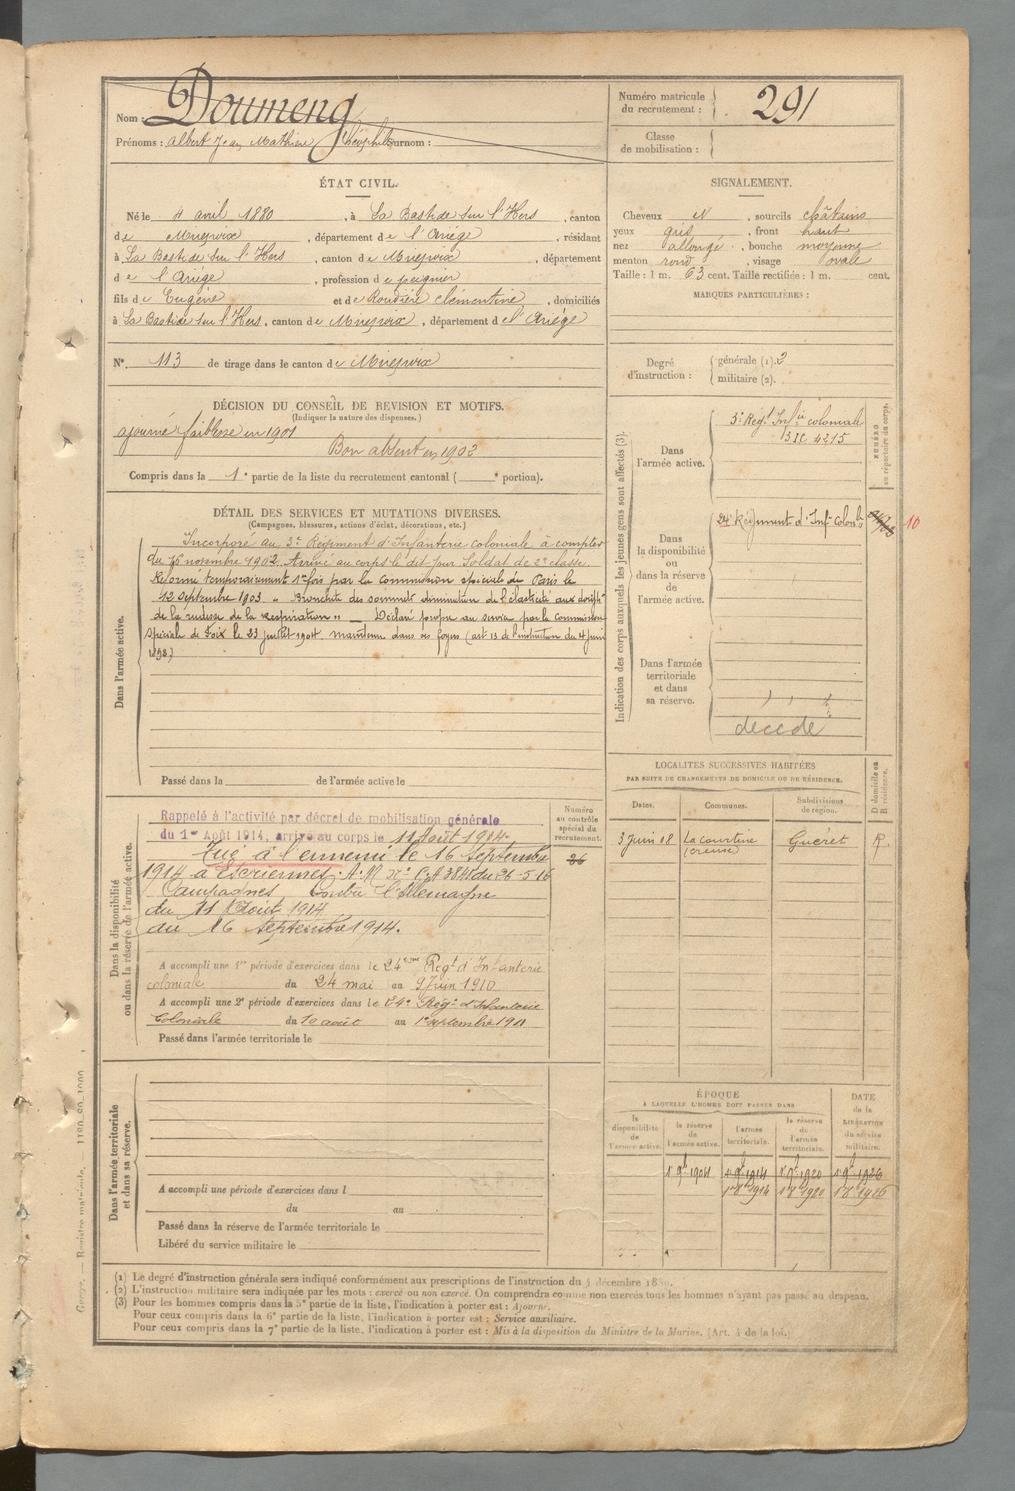 Nom : Doumeng
Prénoms : Albert Jean Mathieu Théophile Surnom :
Numéro matricule du recrutement : 291
Classe de mobilisation :
ÉTAT CIVIL.
Né le 4 avril 1880, à La Bastide sur l'Hers, canton
de Mirepoix, département de l'Ariége, résidant
à La Bastide sur l'Hers, canton de Mirepoix, département
de l'Ariége, profession de peignier
fils de Eugène et de Roudière Clémentine, domiciliés
à La Bastide sur l'Hers, canton de Mirepoix, département de l'Ariége
N° 113 de tirage dans le canton de Mirepoix
SIGNALEMENT.
Cheveux N, sourcils châtains
yeux gris, front haut
nez allongé, bouche moyenne
menton rond, visage ovale
Taille : 1 m. 63 cent. Taille rectifiée : 1 m. cent.
MARQUES PARTICULIÈRES :
Degré d'instruction : générale (1). 2
militaire (2).
DÉCISION DU CONSEIL DE REVISION ET MOTIFS.
(Indiquer la nature des dispenses.)
ajourné faiblesse en 1901
Bon absent en 1902
Compris dans la 1e partie de la liste du recrutement cantonal ( e portion).
DÉTAIL DES SERVICES ET MUTATIONS DIVERSES.
(Campagnes, blessures, actions d'éclat, décorations, etc.)
Dans l'armée active.
Incorporé au 3e Régiment d'Infanterie coloniale à compter
du 16 novembre 1902. Arrivé au corps le dit jour Soldat de 2e classe.
Réformé temporairement 1e fois par la commission spéciale de Paris le
12 septembre 1903 " Bronchite des sommets diminution de l'élasticité
de la rudesse de la respiration " — Déclaré propre au service par la commission
spéciale de Foix le 23 juillet 1904. maintenu dans ses foyers (art 13 de l'instruction du 4 juin
1898)
Passé dans la de l'armée active le
Indication des corps auxquels les jeunes gens sont affectés (3).
NUMÉRO au répertoire du corps.
Dans l'armée active.
3e Régt Infie coloniale
4215
Dans la disponibilité ou dans la réserve de l'armée active.
24e Régiment d'Infie Colonle
10
Dans l'armée territoriale et dans sa réserve.
décédé
LOCALITÉS SUCCESSIVES HABITÉES
PAR SUITE DE CHANGEMENTS DE DOMICILE OU DE RÉSIDENCE.
Dates. Communes. Subdivisions de région. D domicile ou R résidence.
3 Juin 08 La courtine (creuse) Guéret R.
Dans la disponibilité ou dans la réserve de l'armée active.
Numéro au contrôle spécial du recrutement.
26
Rappelé à l'activité par décret de mobilisation générale
du 1er Août 1914, arrivé au corps le 11 Août 1914.
Tué à l'ennemi le 16 septembre
1914 à Écriennes. A.M. du 26-5-16
Campagnes Contre l'Allemagne
du 11 Août 1914
du 16 Septembre 1914.
A accompli une 1re période d'exercices dans le 24eme Régt d'Infanterie
coloniale du 24 mai au 9 Juin 1910
A accompli une 2e période d'exercices dans le 24e Régt d'Infanterie
Coloniale du 10 août au 1er septembre 1911
Passé dans l'armée territoriale le
Dans l'armée territoriale et dans sa réserve.
A accompli une période d'exercices dans l
du au
Passé dans la réserve de l'armée territoriale le
Libéré du service militaire le
ÉPOQUE
À LAQUELLE L'HOMME DOIT PASSER DANS
DATE de la LIBÉRATION du service militaire.
la disponibilité de l'armée active. la réserve de l'armée active. l'armée territoriale. la réserve de l'armée territoriale.
1er 9b 1904 1er 9b 1914 1er 9b 1920 1er 9b 1926
1er 8b 1914 1er 8b 1920 1er 8b 1926
(1) Le degré d'instruction générale sera indiqué conformément aux prescriptions de l'instruction du 5 décembre
(2) L'instruction militaire sera indiquée par les mots : exercé ou non exercé. On comprendra comme non exercés tous les hommes n'ayant pas passé au drapeau.
(3) Pour les hommes compris dans la 5e partie de la liste, l'indication à porter est : Ajourné.
Pour ceux compris dans la 6e partie de la liste, l'indication à porter est : Service auxiliaire.
Pour ceux compris dans la 7e partie de la liste, l'indication à porter est : Mis à la disposition du Ministre de la Marine. (Art. 4 de la loi.)